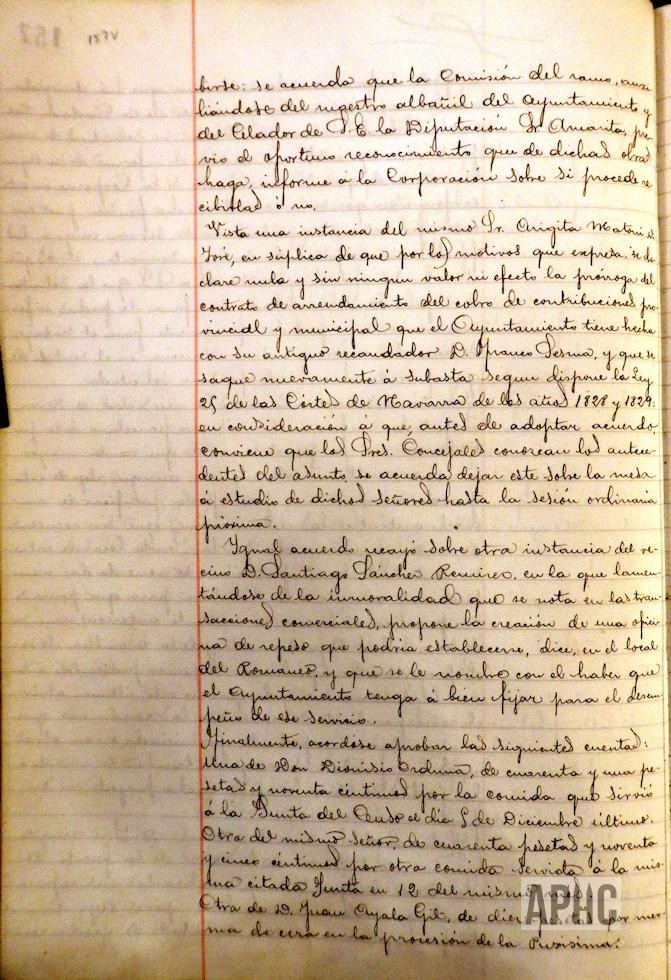 157V
birse: se acuerda que la Comisión del ramo, auxi-
liándose del maestro albañil del Ayuntamiento y
del Celador de S. E. la Diputación Sr. Amarita, pre-
vio el oportuno reconocimiento que de dichas obras
haga, informe á la Corporación sobre si procede re-
cibirlas ó no.
Vista una instancia del mismo Sr. Angita Matoni
José, en súplica de que por los motivos que expresa, se de-
clare nula y sin ningun valor ni efecto la prórroga del
contrato de arrendamiento del cobro de contribuciones pro-
vincial y municipal que el Ayuntamiento tiene hecha
con su antiguo recaudador D. Franco Sesma, y que se
saque nuevamente á subasta segun dispone la Ley
25 de las Córtes de Navarra de los años 1828 y 1829:
en consideración á que, antes de adoptar acuerdo,
conviene que los Sres. Concejales conozcan los antece-
dentes del asunto, se acuerda dejar este sobre la mesa
á estudio de dichos señores hasta la sesión ordinaria
próxima.
Ygual acuerdo recayó sobre otra instancia del ve-
cino D. Santiago Sánchez Remirez, en la que lamen-
tándose de la inmoralidad que se nota en las tran-
sacciones comerciales, propone la creación de una ofici-
na de repeso que podria establecerse, dice, en el local
del Romaneo, y que se le nombre con el haber que
el Ayuntamiento tenga á bien fijar para el desem-
peño de ese servicio.
Finalmente, acordóse aprobar las siguientes cuentas:
Una de Don Dionisio Orduña, de cuarenta y una pe-
setas y noventa céntimos por la comida que sirvió
á la Junta del Censo el día 5 de Diciembre último.
Otra del mismo señor, de cuarenta pesetas y noventa
y cinco céntimos por otra comida servida á la mis-
ma citada Junta en 12 del mismo mes.
Otra de D. Juan Ayala Gil, de diez pesetas por mer-
ma de cera en la procesión de la Purísima.
APHC